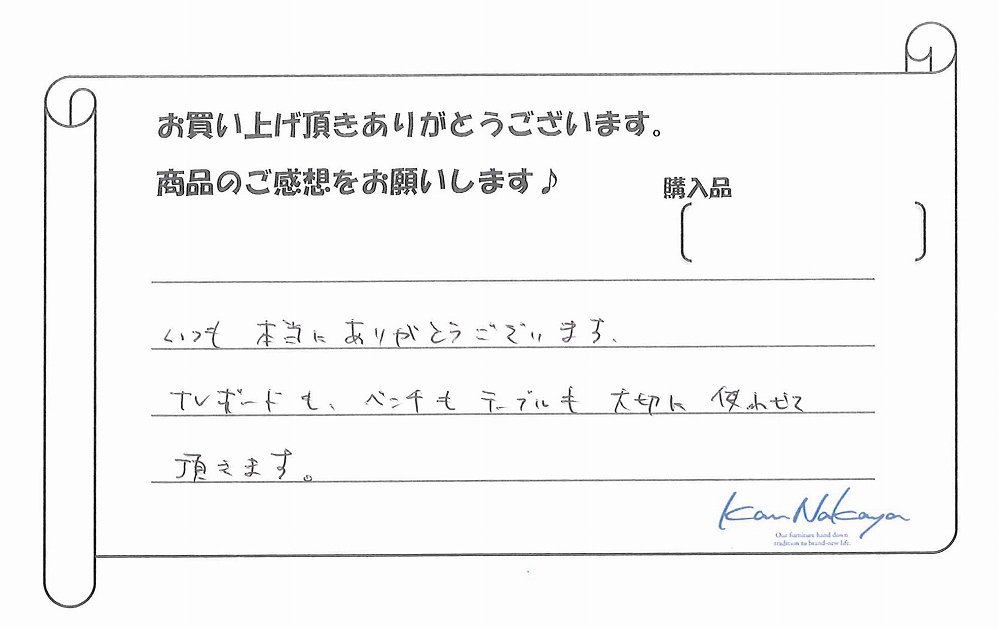 お買い上げ頂きありがとうございます。
商品のご感想をお願いします♪
購入品
いつも 本当に ありがとうございます.
TVボードも、ベンチも テーブルも 大切に 使わせて
頂きます。
Kan Nakaya
Our furniture hand down
tradition to brand-new life.